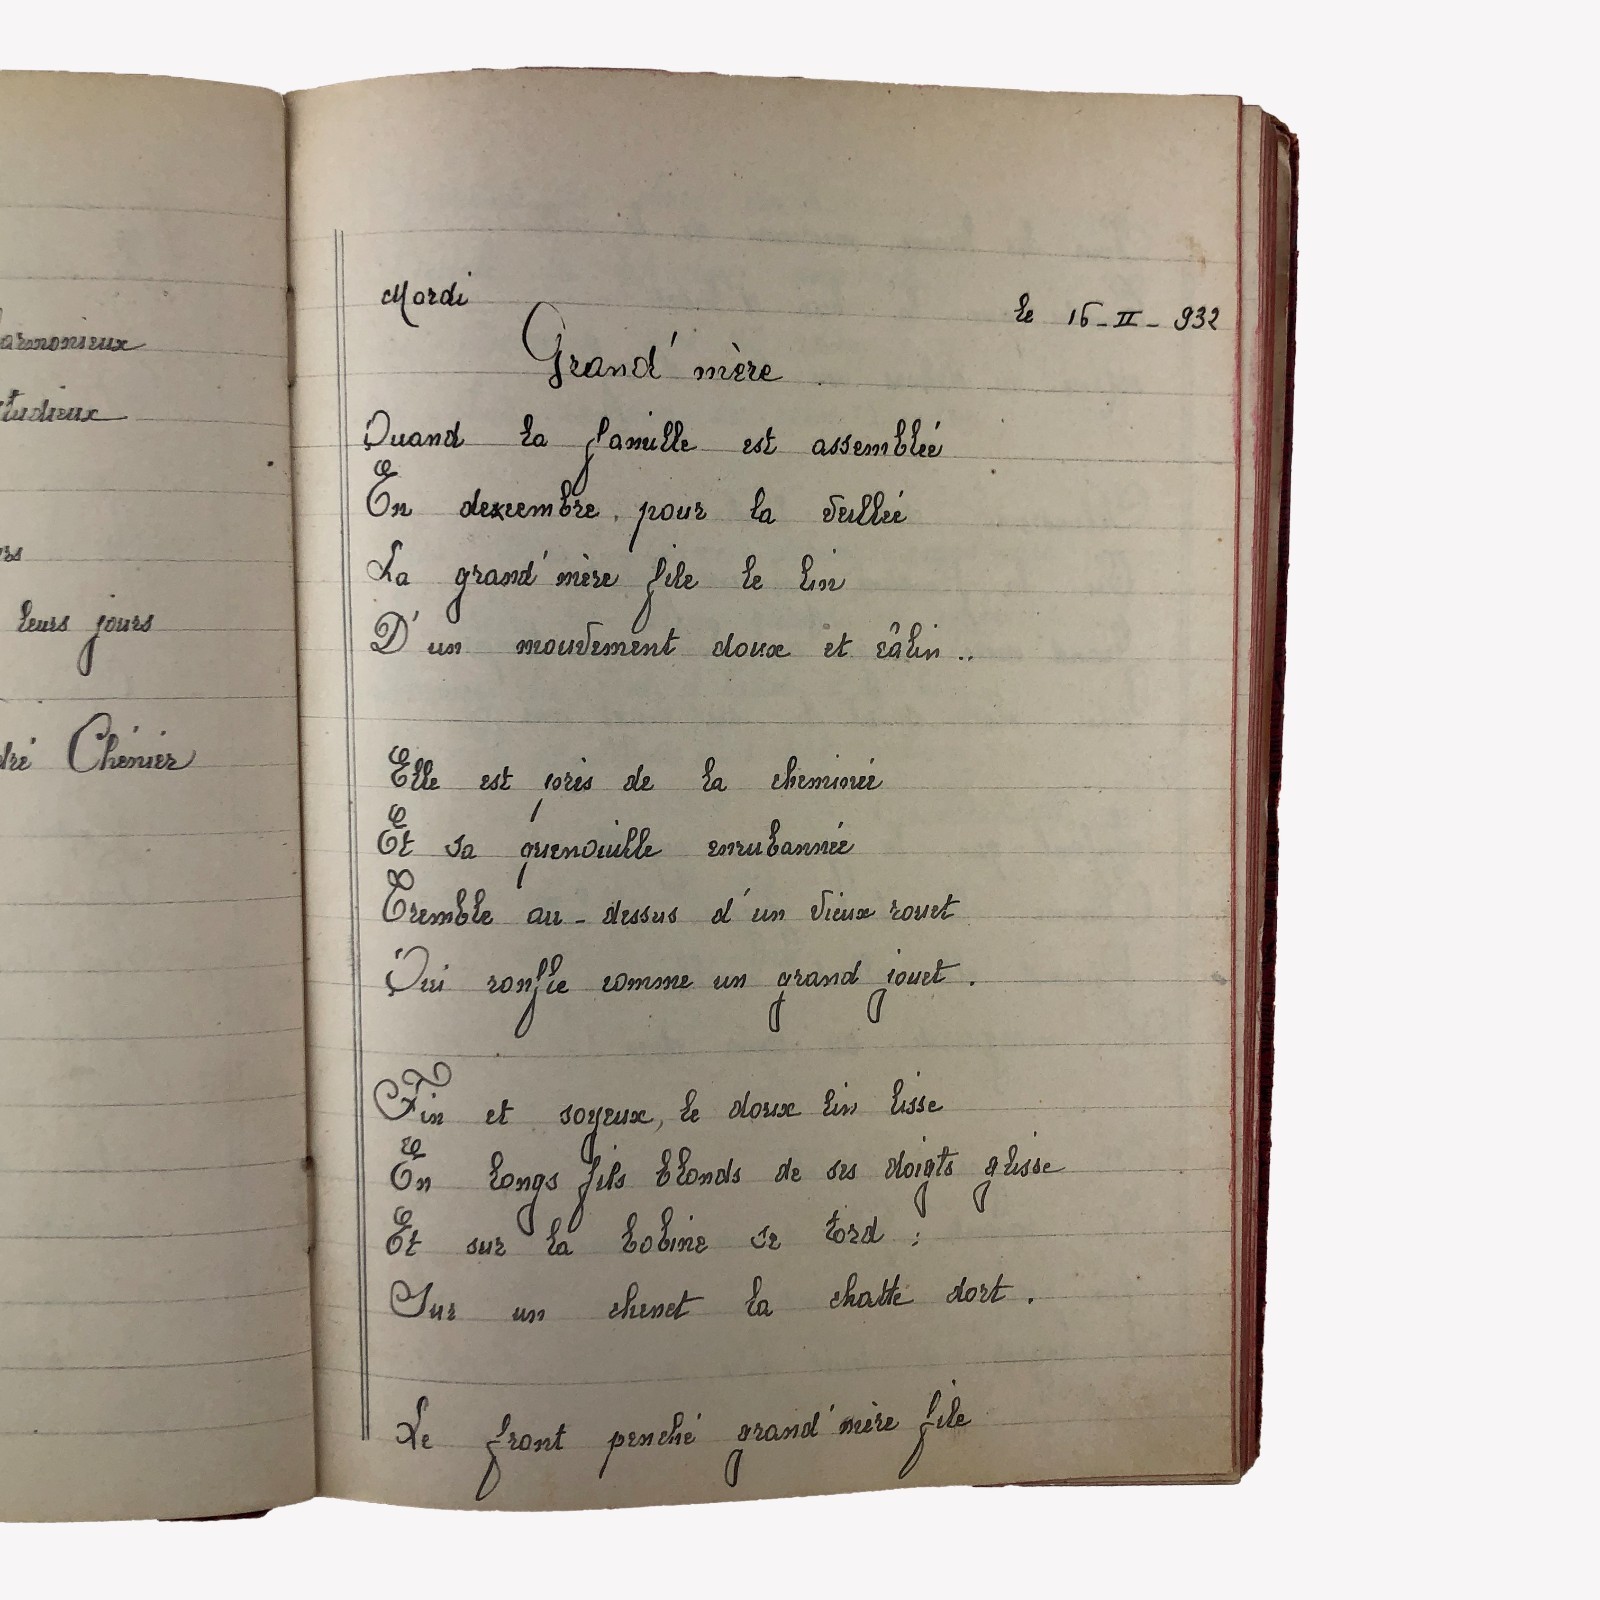 armonieux
tudieux
rs
leurs jours
dré Chénier
Mardi
le 16-II-932
Grand'mère
Quand la famille est assemblée
En dexembre, pour la veillée
La grand'mère file le lin
D'un mouvement doux et câlin..
Elle est près de la cheminée
Et sa quenouille enrubannée
Tremble au-dessus d'un vieux rouet
Qui ronfle comme un grand jouet.
Fin et soyeux, le doux lin lisse
En longs fils blonds de ses doigts glisse
Et sur la bobine se tord :
Sur un chenet la chatte dort.
Le front penché grand'mère file